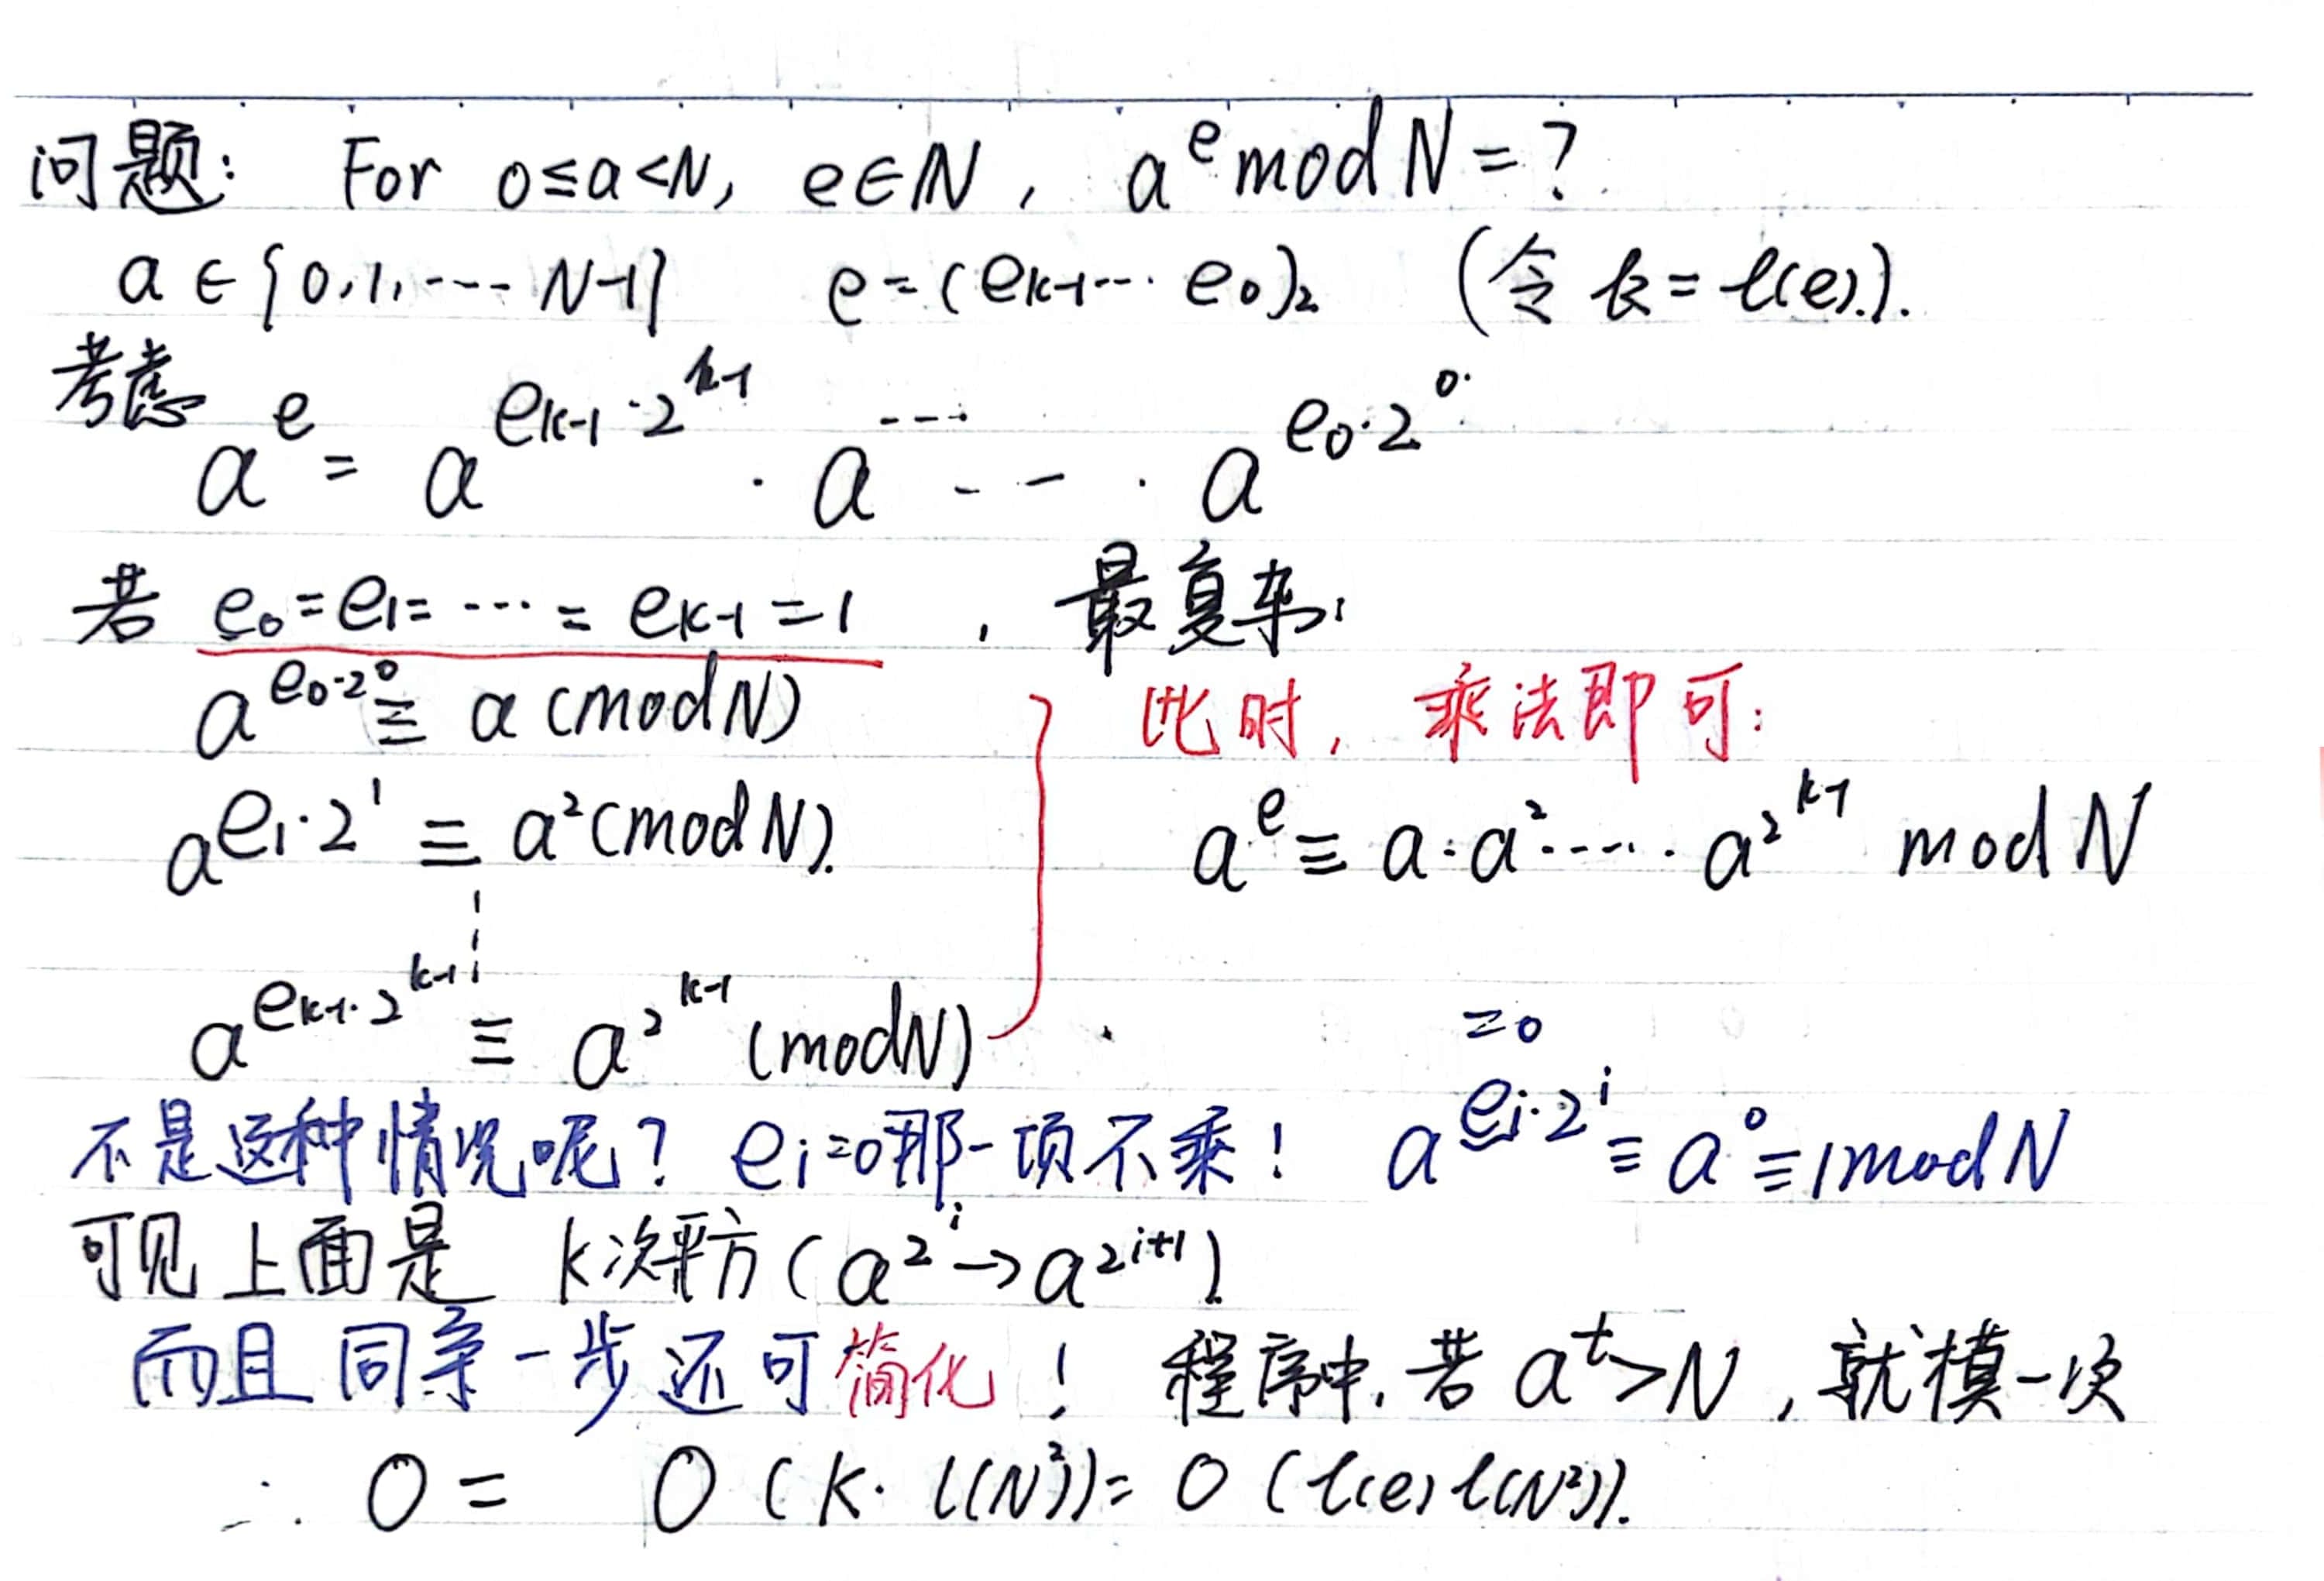 问题: For 0≤a<N, e∈ℕ, a^e mod N = ?
a∈{0,1,---- N-1} e=(e_{k-1}··· e_0)_2 (令 k=ℓ(e)).
考虑
a^e = a^{e_{k-1}·2^{k-1}} · a^{----} -- · a^{e_0·2^0}
若 e_0=e_1= ··· = e_{k-1}=1 , 最复杂:
a^{e_0·2^0} ≡ a (mod N)
此时, 乘法即可:
a^{e_1·2^1} ≡ a^2 (mod N).
a^e ≡ a·a^2·----· a^{2^{k-1}} mod N
a^{e_{k-1}·2^{k-1}} ≡ a^{2^{k-1}} (mod N)
=0
不是这种情况呢? e_i=0那一项不乘! a^{e_i·2^i} ≡ a^0 ≡ 1 mod N
可见上面是 k次平方 (a^{2^i}→a^{2^{i+1}})
而且同余一步还可简化! 程序中, 若 a^t>N , 就模一次
∴ O = O (k· ℓ(N^2)) = O (ℓ(e) ℓ(N^2)).